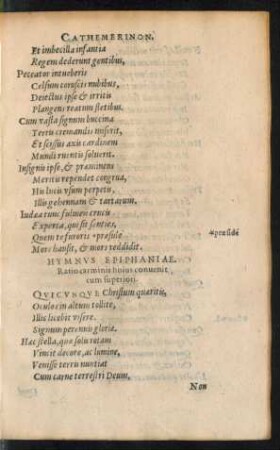 CATHEMERINON.
Et imbecilla infantia
Regem dederunt gentibus,
Peccator intueberis
Celsum coruscis nubibus,
Deiectus ipse & irritis
Plangens reatum fletibus.
Cum vasta signum buccina
Terris cremandis miserit,
Et scissus axis cardinem
Mundi ruentis soluerit.
Insignis ipse, & præminens
Meritis rependet congrua,
His lucis vsum perpetis,
Illis gehennam & tartarum,
Iudæa tunc fulmen crucis
Experta, qui sit senties,
Quem te furoris *præsule
*præside
Mors hausit, & mox reddidit.
HYMNVS EPIPHANIAE.
Ratio carminis huius conuenit
cum superiori.
QVICVNQVE Christum quæritis,
Oculos in altum tollite,
Illic licebit visere.
Signum perennis gloriæ.
Hæc stella, quæ solis rotam
Vincit decore, ac lumine,
Venisse terris nuntiat
Cum carne terrestri Deum,
Non